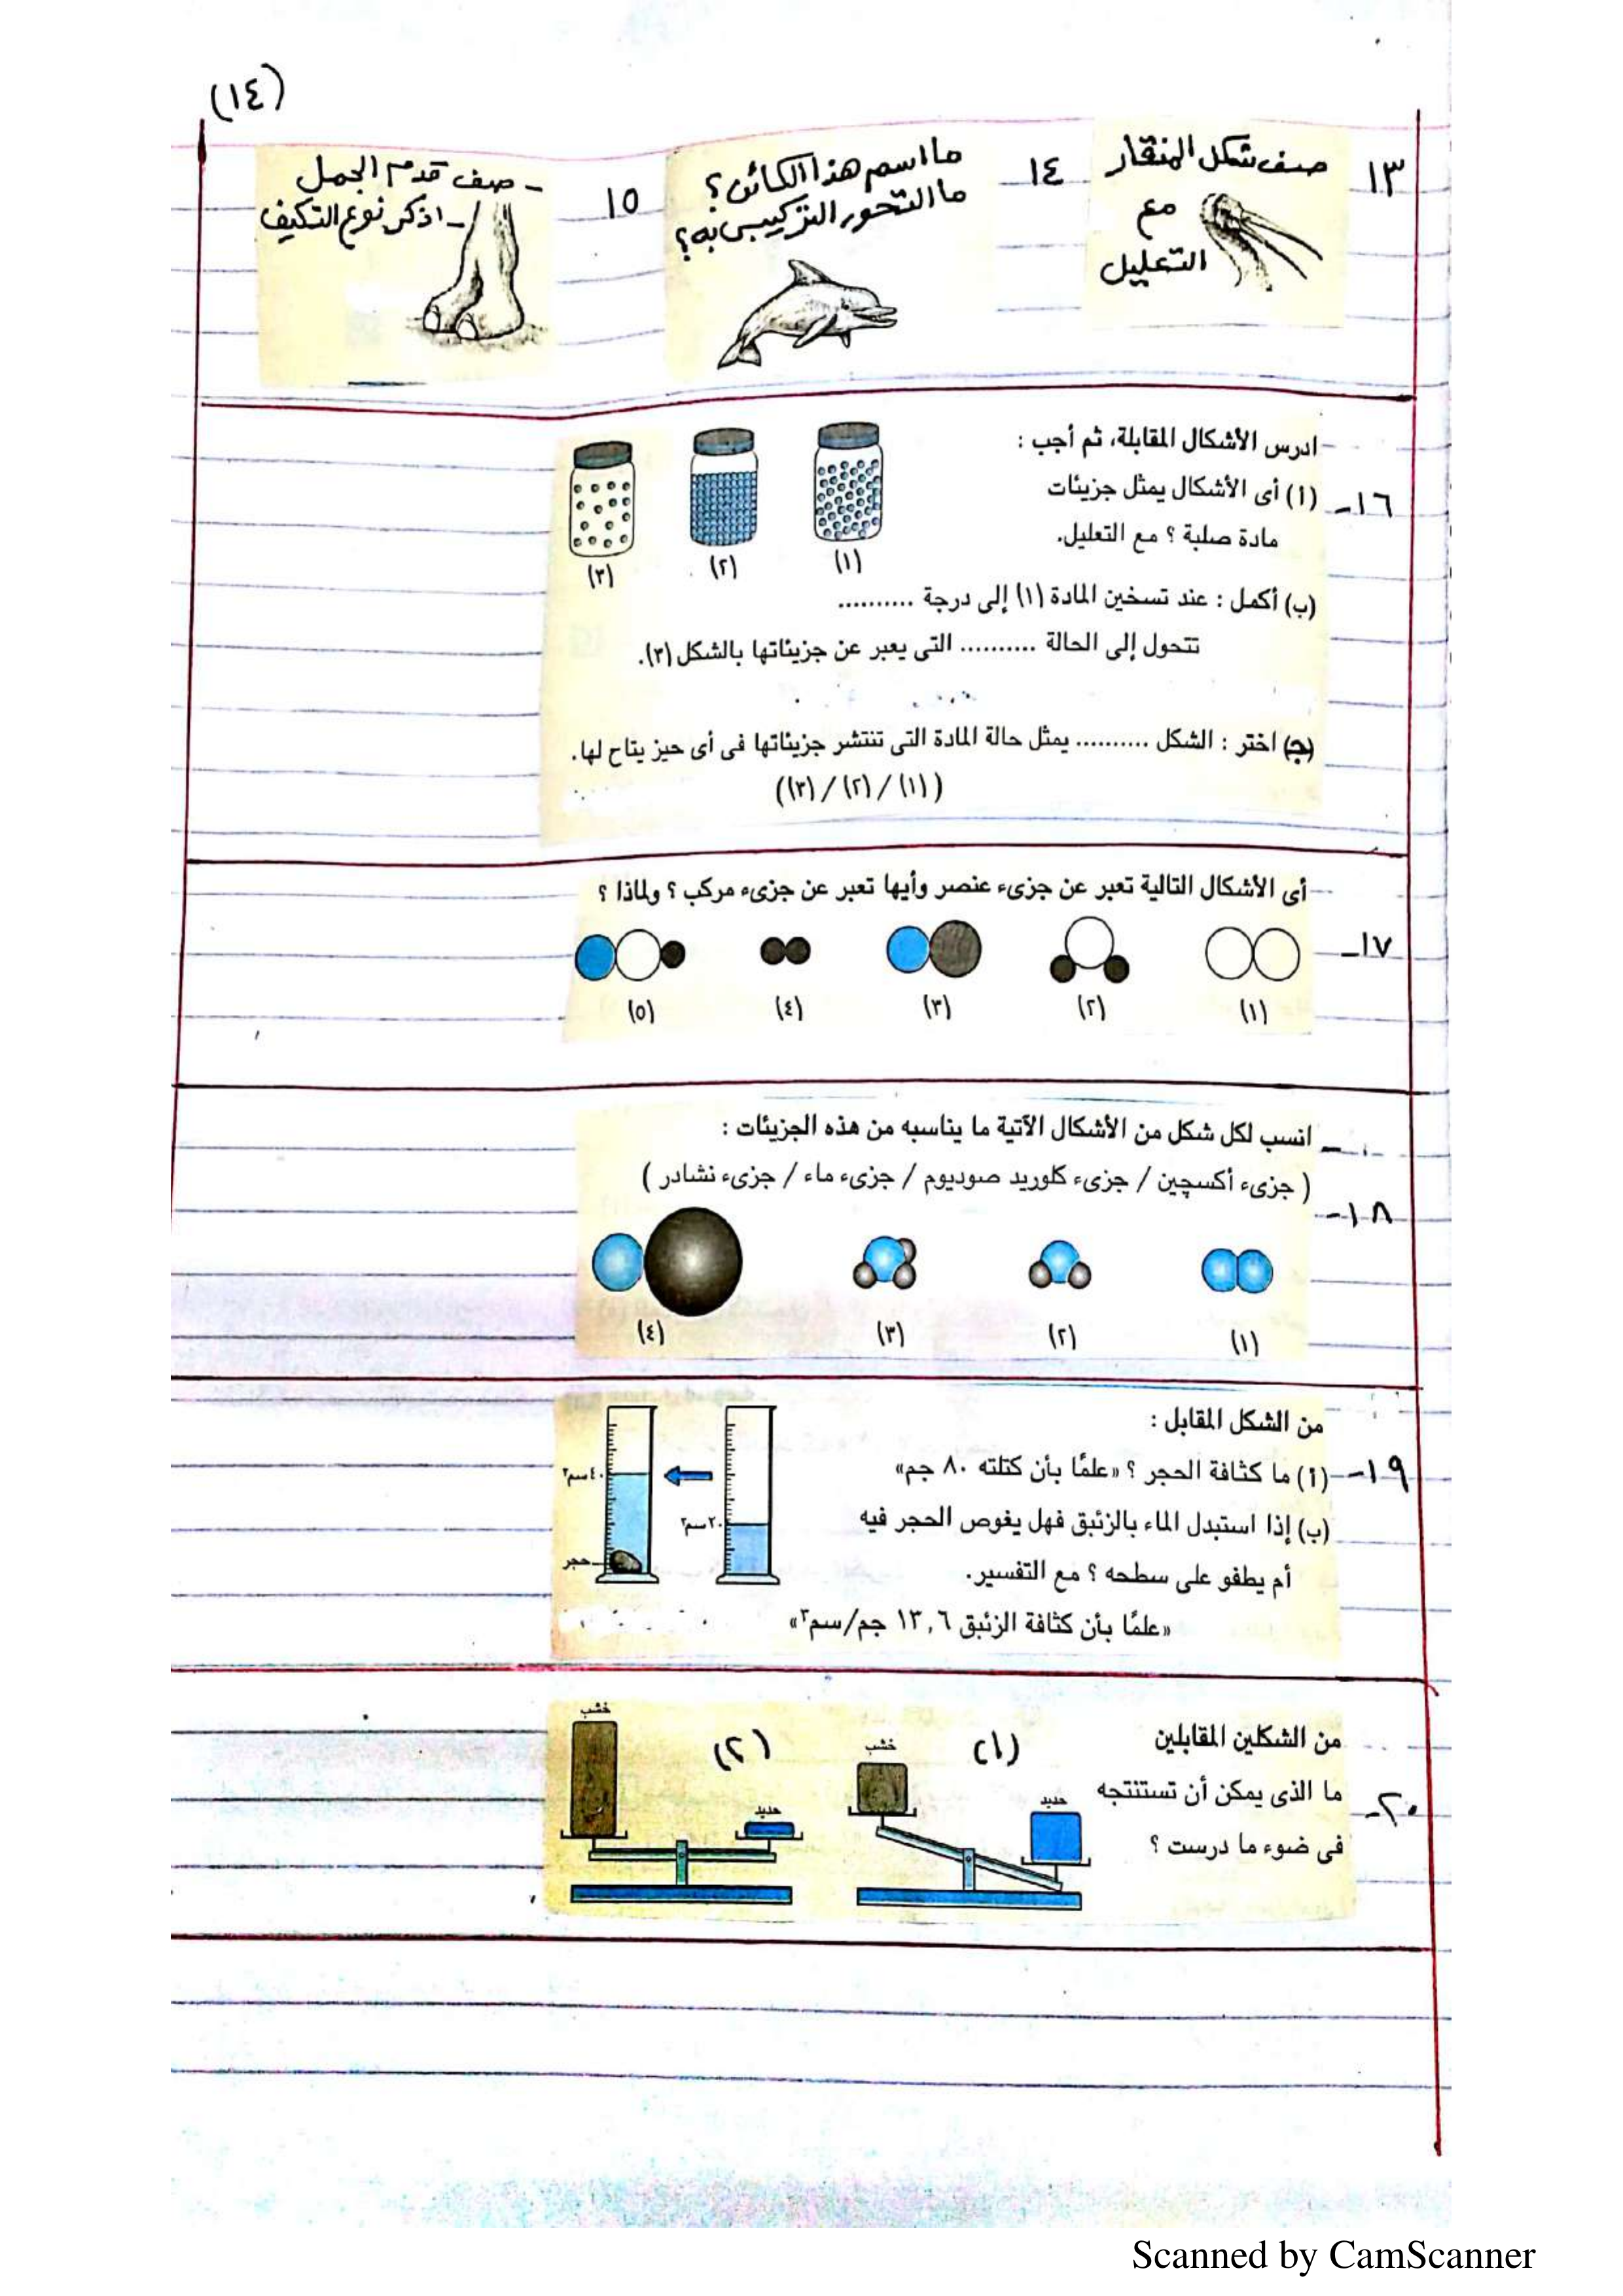 (١٤)
١٣
صف شكل المنقار
مع
التعليل
١٤
ما اسم هذا الكائن؟
ما التحور التركيبى به؟
١٥
- صف قدم الجمل
- اذكر نوع التكيف
- ادرس الأشكال المقابلة، ثم أجب :
١٦- (أ) أى الأشكال يمثل جزيئات
مادة صلبة ؟ مع التعليل.
(١) (٢) (٣)
(ب) أكمل : عند تسخين المادة (١) إلى درجة ..........
تتحول إلى الحالة .......... التى يعبر عن جزيئاتها بالشكل (٣).
(ج) اختر : الشكل .......... يمثل حالة المادة التى تنتشر جزيئاتها فى أى حيز يتاح لها.
((١) / (٢) / (٣))
- أى الأشكال التالية تعبر عن جزىء عنصر وأيها تعبر عن جزىء مركب ؟ ولماذا ؟
١٧-
(١) (٢) (٣) (٤) (٥)
انسب لكل شكل من الأشكال الآتية ما يناسبه من هذه الجزيئات :
( جزىء أكسچين / جزىء كلوريد صوديوم / جزىء ماء / جزىء نشادر )
١٨-
(١) (٢) (٣) (٤)
من الشكل المقابل :
١٩- (أ) ما كثافة الحجر ؟ «علمًا بأن كتلته ٨٠ جم»
(ب) إذا استبدل الماء بالزئبق فهل يغوص الحجر فيه
أم يطفو على سطحه ؟ مع التفسير.
«علمًا بأن كثافة الزئبق ١٣,٦ جم/سم٣»
٢٠سم٣
٤٠سم٣
حجر
من الشكلين المقابلين
٢٠- ما الذى يمكن أن تستنتجه
فى ضوء ما درست ؟
(١)
خشب
حديد
(٢)
خشب
حديد
Scanned by CamScanner